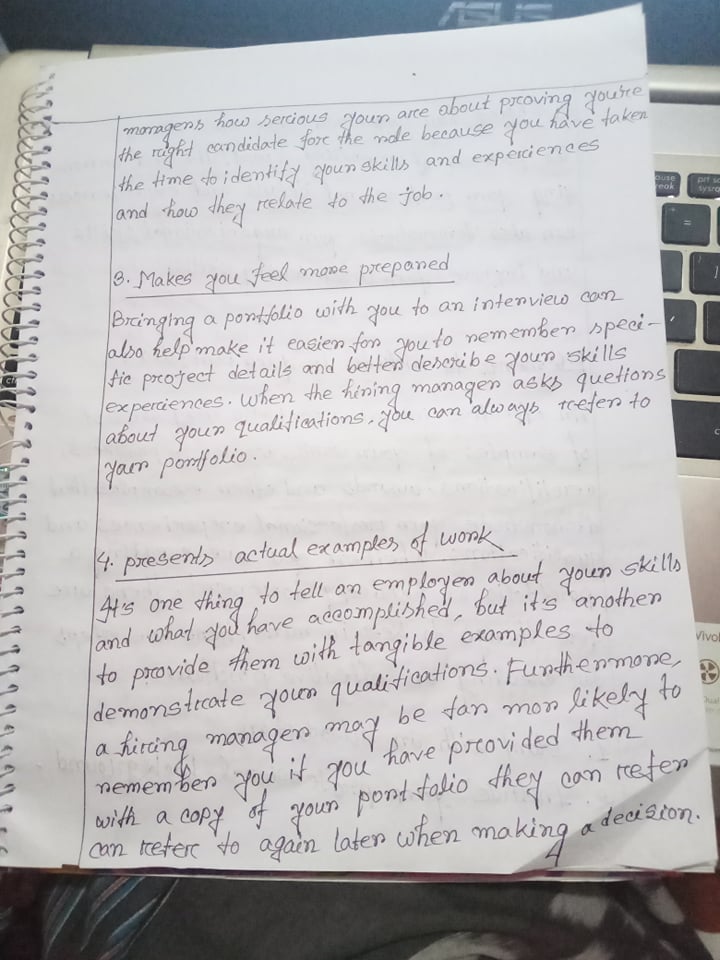 ASUS
managers how serious your are about proving you're
the right candidate for the role because you have taken
the time to identify your skills and experiences
and how they relate to the job.
3. Makes you feel more prepared
Bringing a portfolio with you to an interview can
also help make it easier for you to remember speci-
fic project details and better describe your skills
experciences. When the hiring manager asks quetions
about your qualifications, you can always refer to
your portfolio.
4. presents actual examples of work
It's one thing to tell an employer about your skills
and what you have accomplished, but it's another
to provide them with tangible examples to
demonstrate your qualifications. Furthermore,
a hiring manager may be far mor likely to
remember you if you have provided them
with a copy of your portfolio they can refer
can refer to again later when making a decision.
4
prt sc
sysrq
=